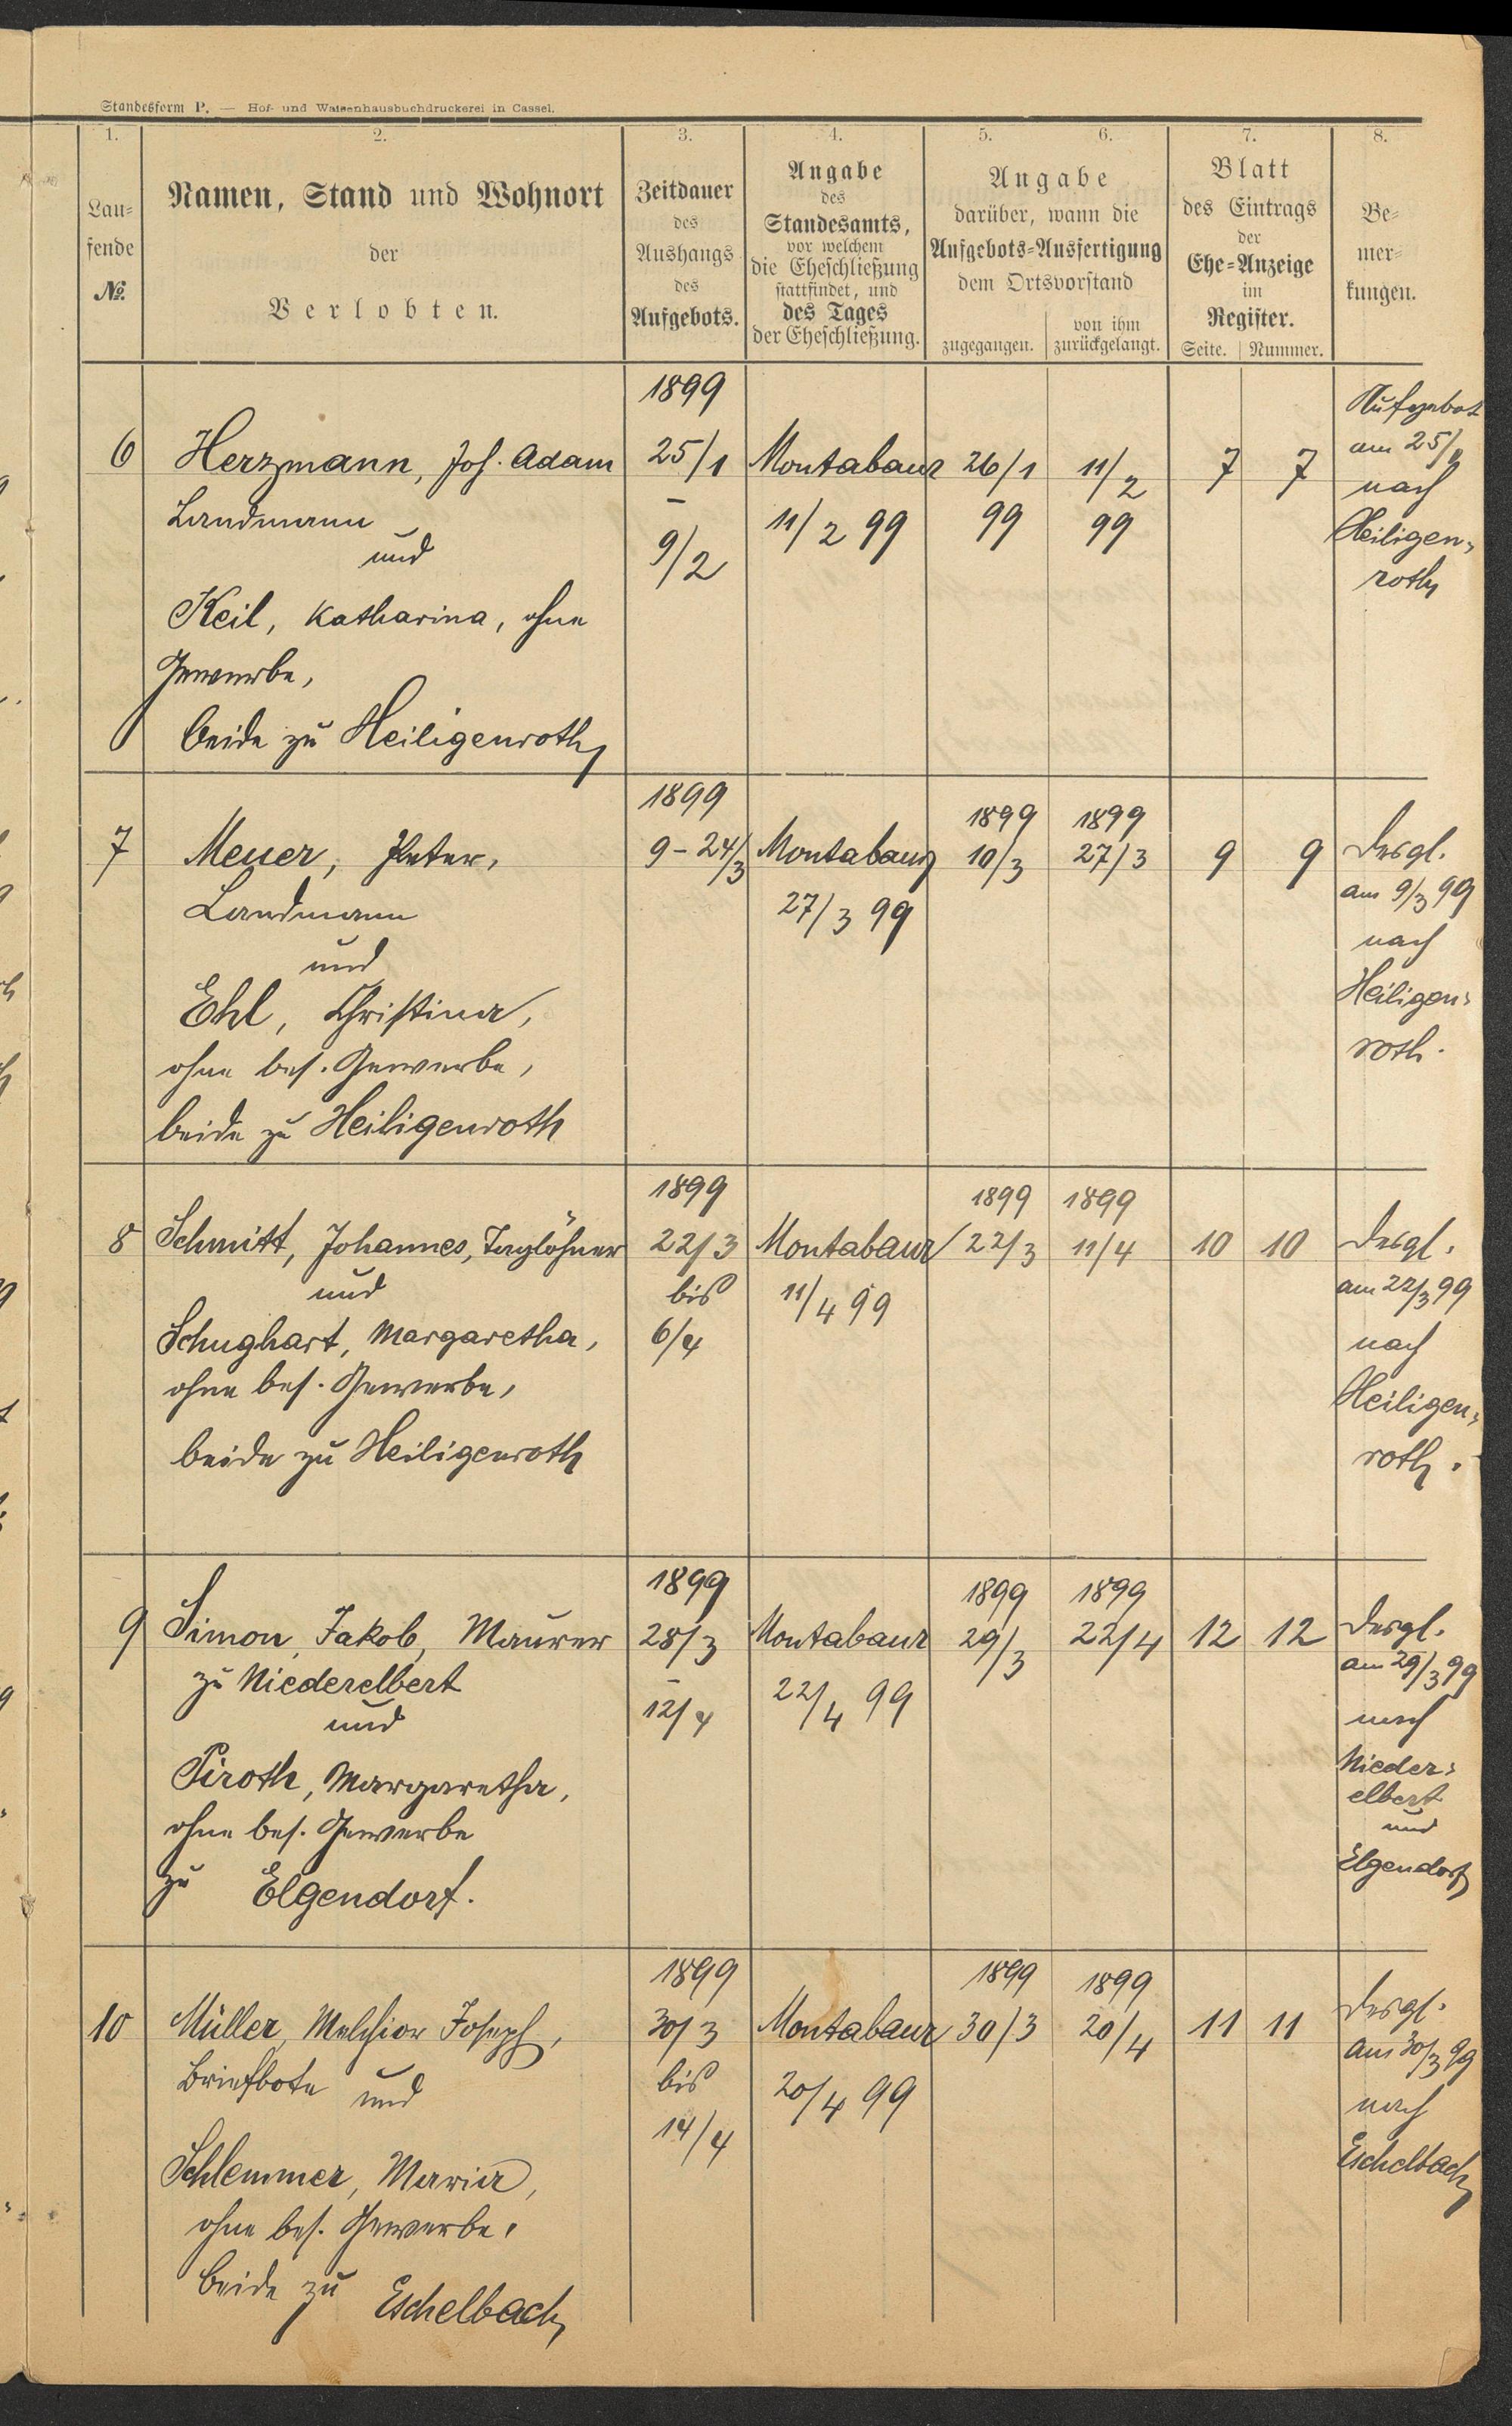 Standesform P. — Hof- und Waisenhausbuchdruckerei in Cassel.
1. 2. 3. 4. 5. 6. 7. 8.
Lau-
fende
№.
Namen, Stand und Wohnort
der
Verlobten.
Zeitdauer
des
Aushangs
des
Aufgebots.
Angabe
des
Standesamts,
vor welchem
die Eheschließung
stattfindet, und
des Tages
der Eheschließung.
Angabe
darüber, wann die
Aufgebots-Ausfertigung
dem Ortsvorstand
zugegangen.
von ihm
zurückgelangt.
Blatt
des Eintrags
der
Ehe-Anzeige
im
Register.
Seite. Nummer.
Be-
mer-
kungen.
6
Herzmann, Joh. Adam
Landmann
und
Keil, Katharina, ohne
Gewerbe,
beide zu Heiligenroth
1899
25/1
–
9/2
Montabaur
11/2 99
26/1
99
11/2
99
7
7
Aufgebot
am 25/1
nach
Heiligen-
roth
7
Meuer, Peter,
Landmann
und
Ehl, Christina,
ohne bes. Gewerbe,
beide zu Heiligenroth
1899
9 - 24/3
Montabaur
27/3 99
1899
10/3
1899
27/3
9
9
desgl.
am 9/3 99
nach
Heiligen-
roth.
8
Schmitt, Johannes, Taglöhner
und
Schughart, Margaretha,
ohne bes. Gewerbe,
beide zu Heiligenroth
1899
22/3
bis
6/4
Montabaur
11/4 99
1899
22/3
1899
11/4
10
10
desgl.
am 22/3 99
nach
Heiligen-
roth.
9
Simon, Jakob, Maurer
zu Niederelbert
und
Piroth, Margaretha,
ohne bes. Gewerbe
zu Elgendorf.
1899
28/3
–
12/4
Montabaur
22/4 99
1899
29/3
1899
22/4
12
12
desgl.
am 29/3 99
nach
Nieder-
elbert
und
Elgendorf
10
Müller, Melchior Joseph,
Briefbote und
Schlemmer, Maria,
ohne bes. Gewerbe,
beide zu Eschelbach
1899
30/3
bis
14/4
Montabaur
20/4 99
1899
30/3
1899
20/4
11
11
desgl.
am 30/3 99
nach
Eschelbach